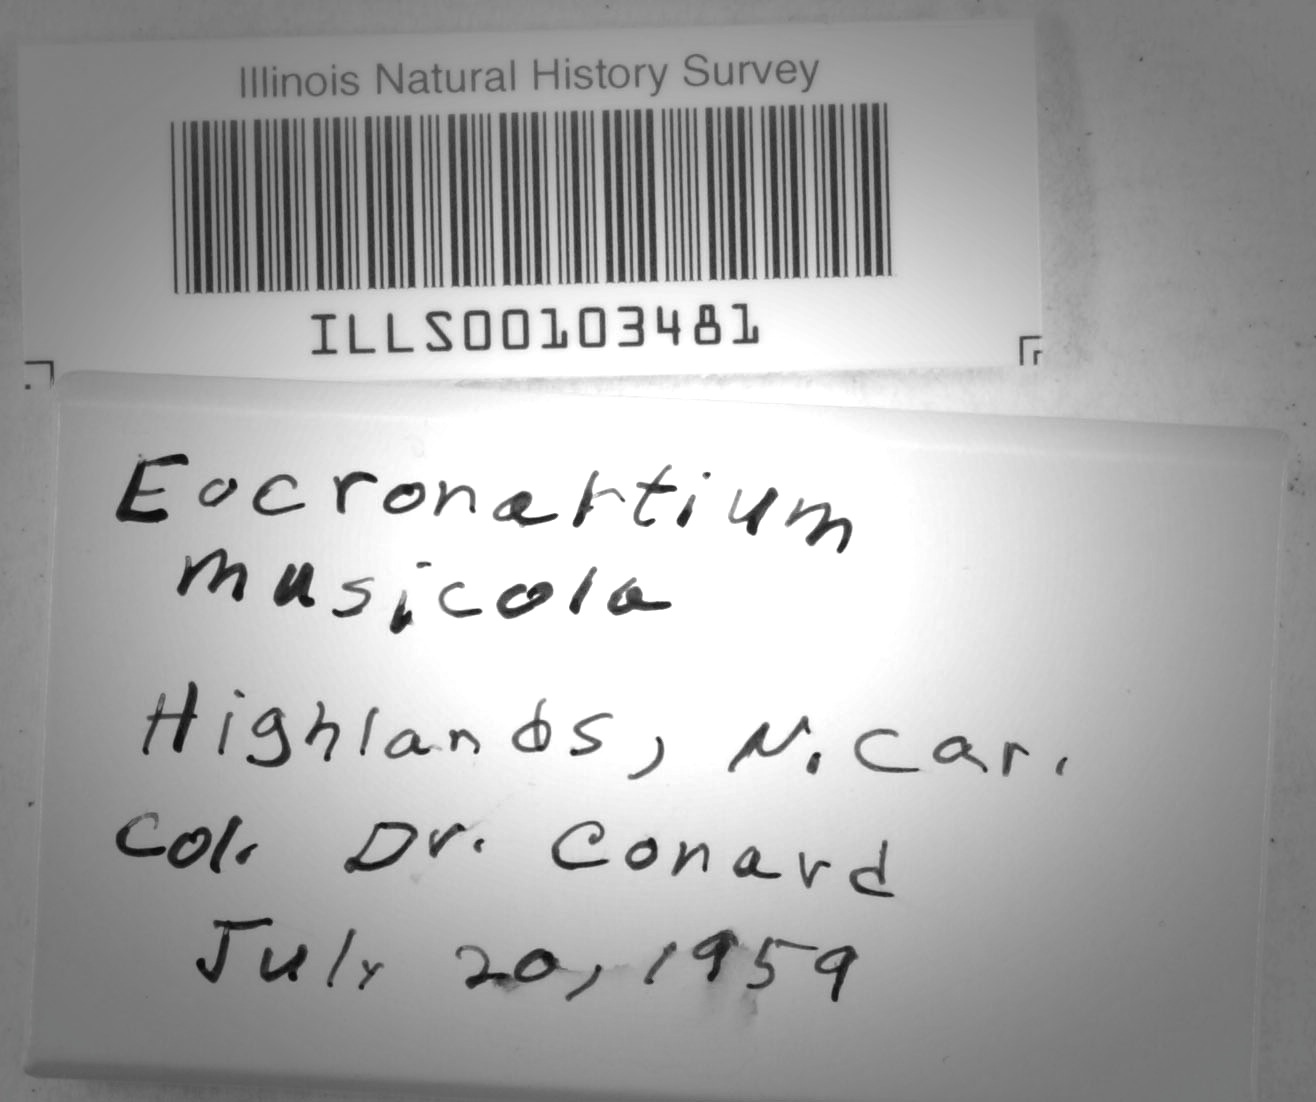 Illinois Natural History Survey
ILLS00103481
Eocronartium
musicola
Highlands, N. Car.
Col. Dr. Conard
July 20, 1959